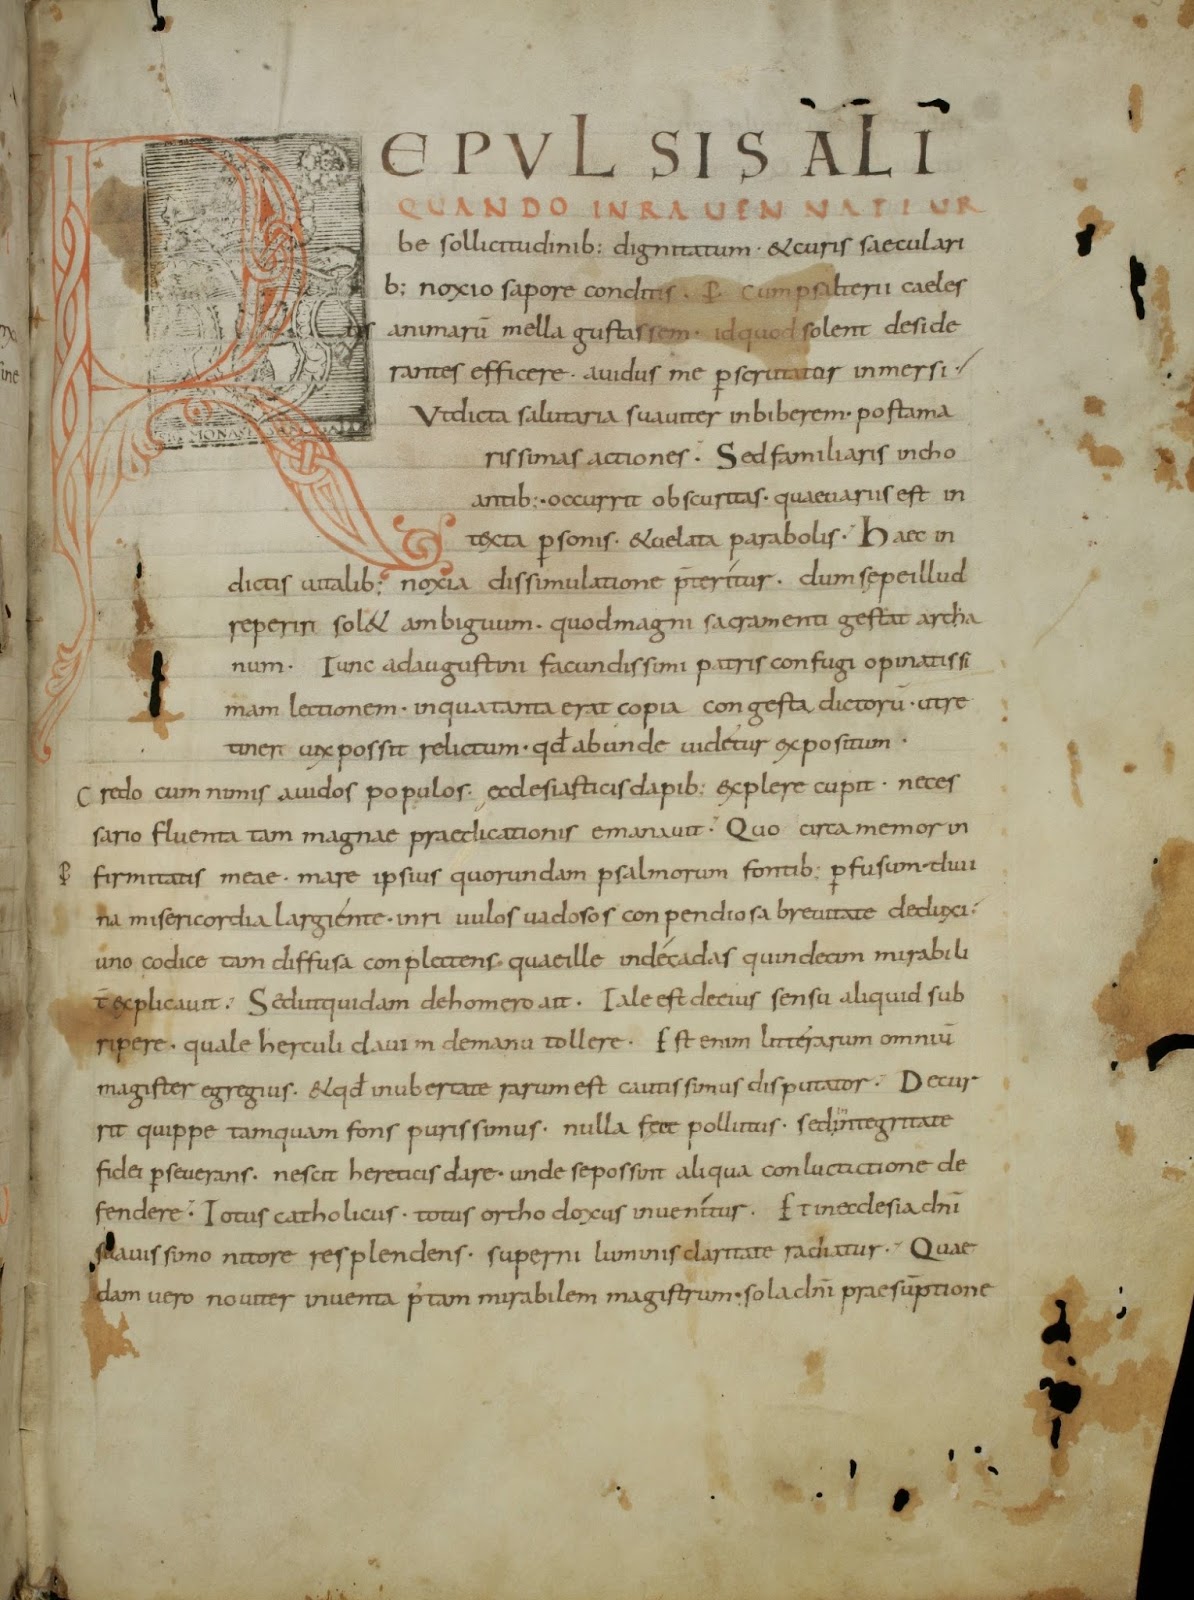 REPULSIS ALI
QUANDO IN RAVENNATI UR
be sollicitudinib: dignitatum · & curis saeculari
b: noxio sapore conditis · cum psalterii caeles
tis animarū mella gustassem · id quod solent deside
rantes efficere · avidus me pscrutatur inmersi ·
Ut dicta salutaria suaviter inbiberem · post ama
rissimas actiones · Sed familiaris incho
antib: · occurrit obscuritas · quae variis est in
texta psonis · & velata parabolis · Haec in
dictis vitalib: noxia dissimulatione p̄teritur · dum sepe illud
reperiri sol& ambiguum · quod magni sacramenti gestat archa
num · Tunc ad augustini facundissimi patris confugi opinatissi
mam lectionem · in qua tanta erat copia congesta dictorū · ut re
tineri vix possit relictum · qđ abunde videtur expositum ·
Credo cum nimis avidos populos ecclesiasticis dapib: explere cupit · neces
sario fluenta tam magnae praedicationis emanavit · Quo circa memor in
firmitatis meae · mare ipsius quorundam psalmorum fontib: pfusum · divi
na misericordia largiente · in rivulos vadosos conpendiosa brevitate deduxi ·
uno codice tam diffusa conplectens quae ille in decadas quindecim mirabili
t̄ explicavit · Sed ut quidam de homero ait · Tale est de eius sensu aliquid sub
ripere · quale herculi clavim de manu tollere · Est enim litterarum omniū
magister egregius · & qđ in ubertate rarum est cautissimus disputator · Decur
rit quippe tamquam fons purissimus · nulla fece pollutus · sed in integritate
fidei pseverans · nescit hereticis dare · unde se possint aliqua conluctictione de
fendere · Totus catholicus · totus orthodoxus invenitur · Et in ecclesia dn̄i
suavissimo nitore resplendens · superni luminis claritate radiatur · Quae
dam vero noviter inventa p̓ tam mirabilem magistrum · sola dn̄i praesūptione